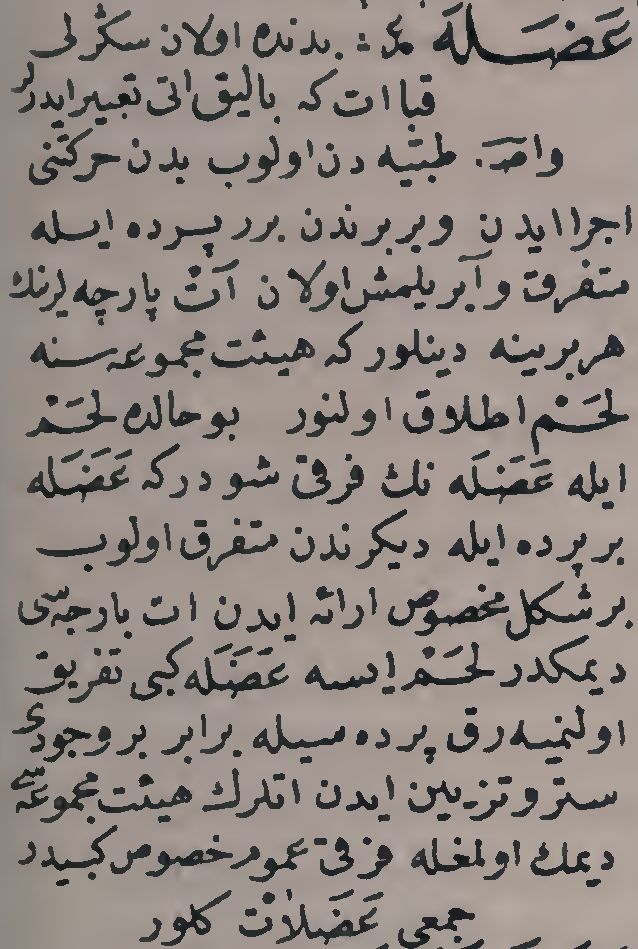 عَضَلَه ع : بدنده اولان سكرلی
قبا ات كه بالیق اتی تعبیر ایدرلر
واصـ . طبیه دن اولوب بدن حركتنی
اجرا ایدن و بربرندن برر پرده ایله
متفرق و آیریلمش اولان آت پارچه لرنك
هر برینه دینلور كه هیئت مجموعه سنه
لحَم اطلاق اولنور بو حالده لحَم
ایله عَضَلَه نك فرقی شو در كه عَضَلَه
بر پرده ایله دیكرندن متفرق اولوب
بر شكل مخصوص ارائه ایدن ات پارچه سی
دیمكدر لحَم ایسه عَضَلَه كبی تفریق
اولنمیه رق پرده سیله برابر بر وجودی
ستر و تزیین ایدن اتلرك هیئت مجموعه سی
دیمك اولمغله فرقی عموم خصوص كبیدر
جمعی عَضَلات كلور